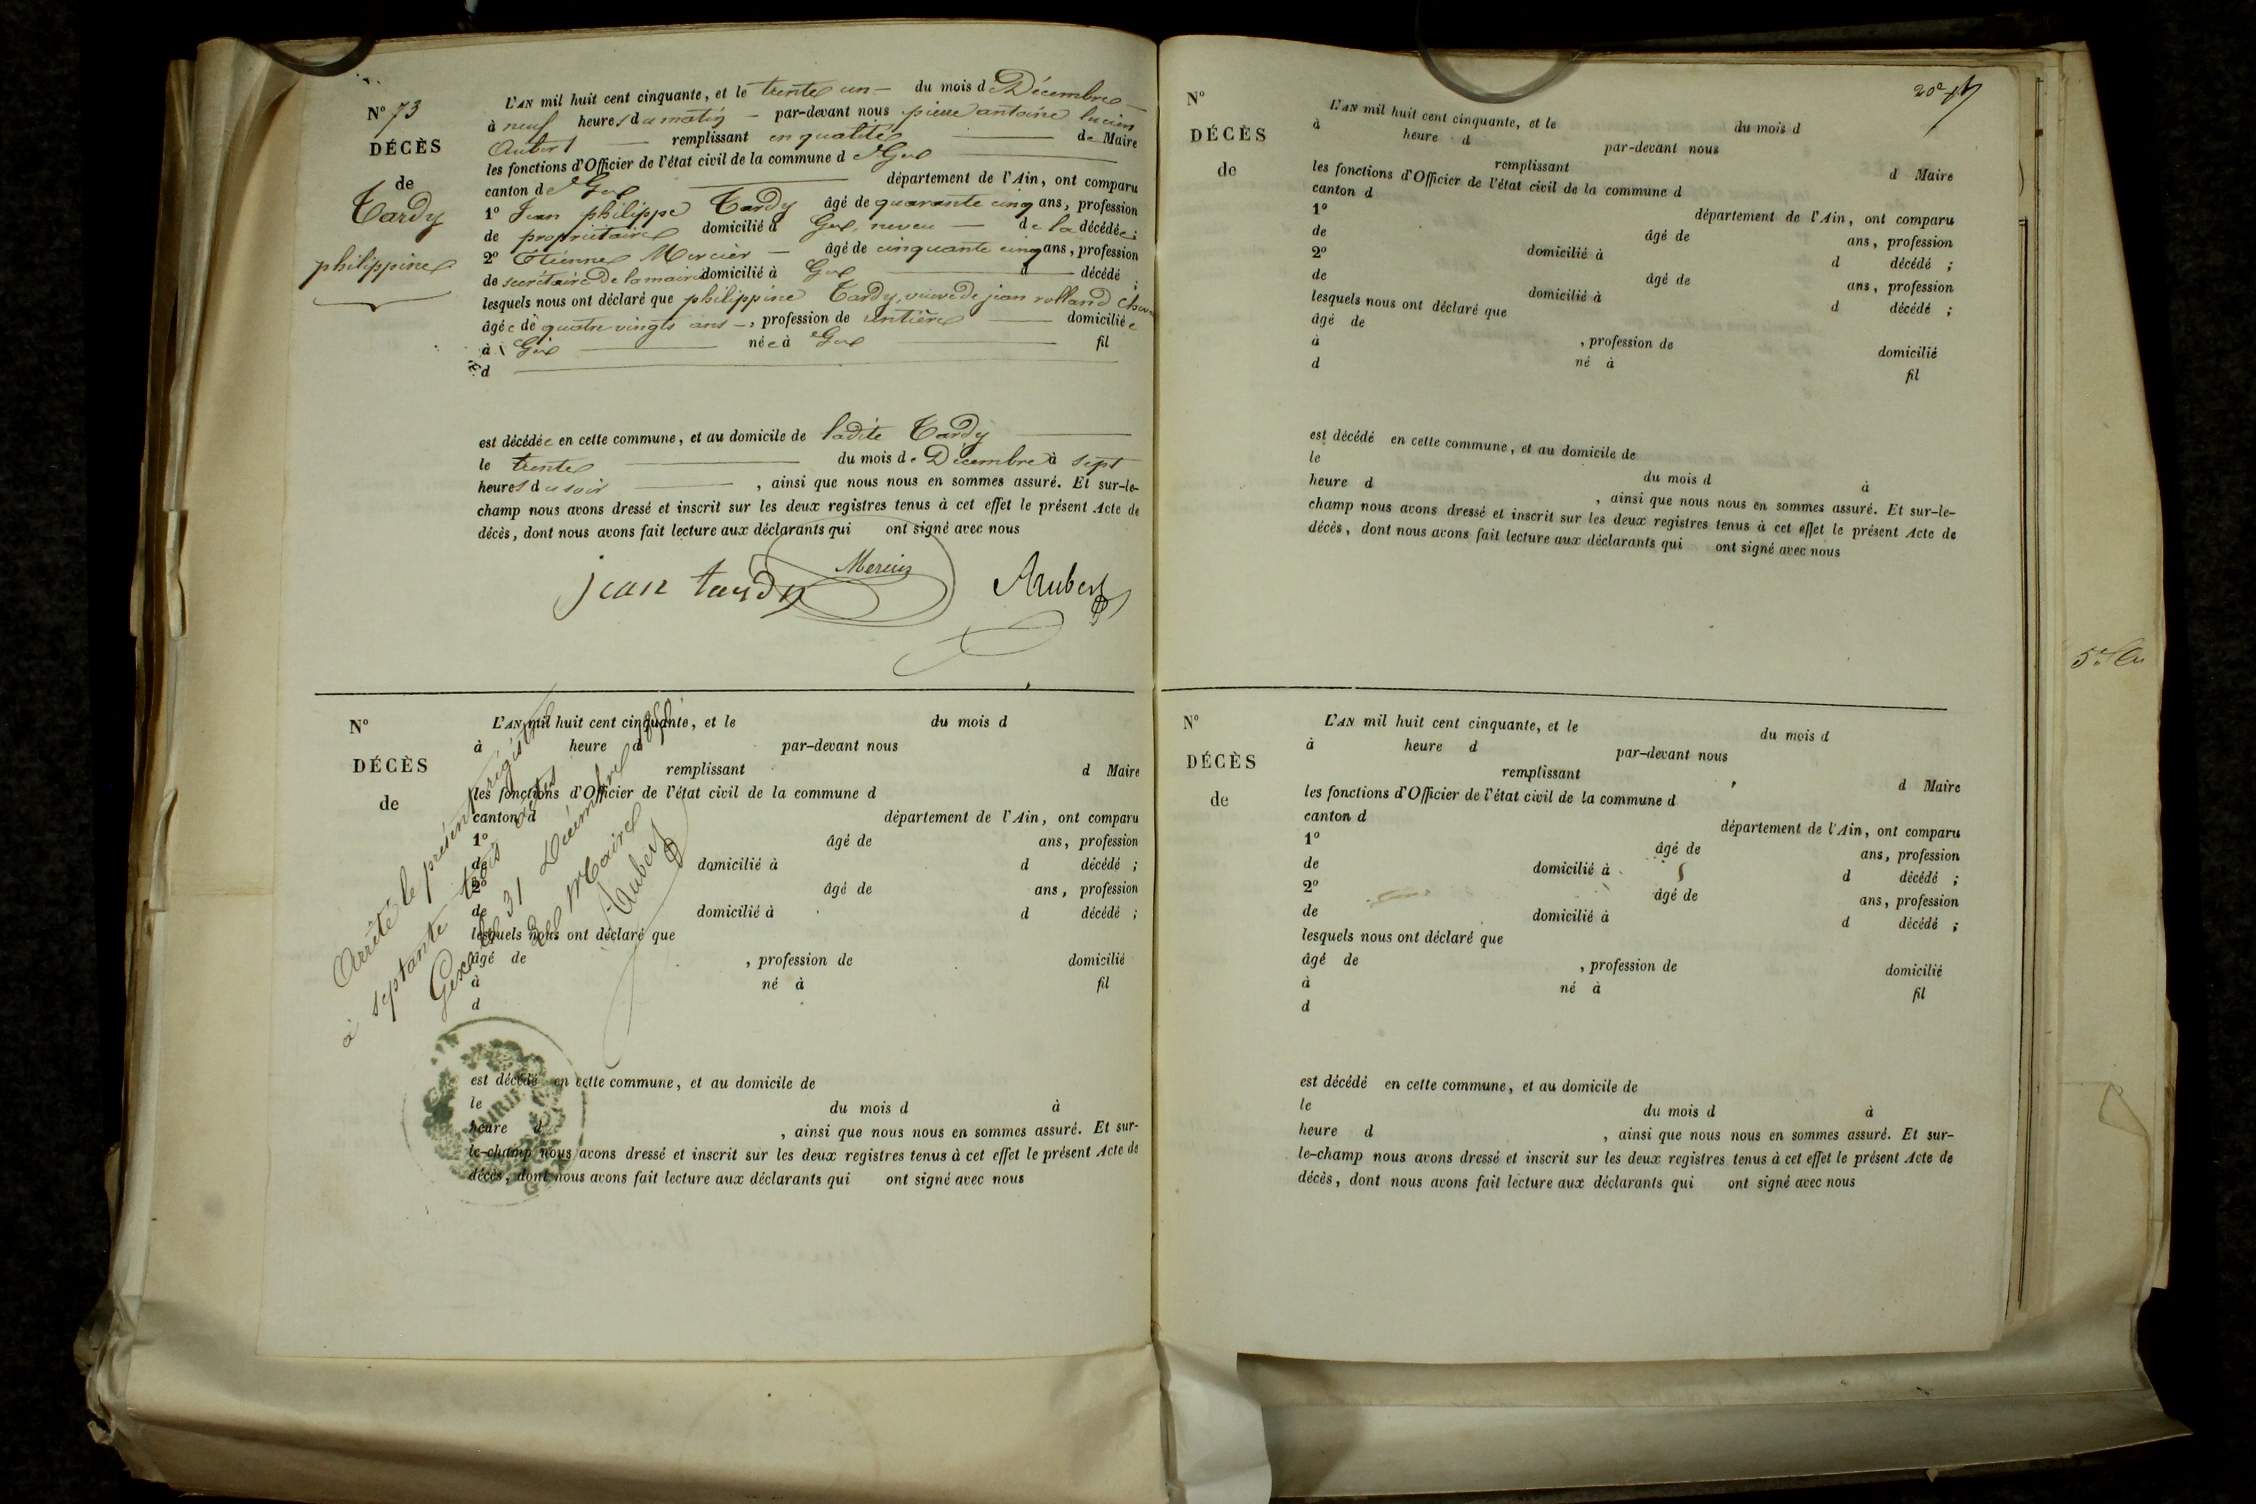 N° 73
DÉCÈS
de
Tardy
philippine
L'AN mil huit cent cinquante, et le trente un du mois de Décembre
à neuf heures du matin par-devant nous pierre antoine lucien
Aubert remplissant en qualité de Maire
les fonctions d'Officier de l'état civil de la commune de Gex
canton de Gex département de l'Ain, ont comparu
1° Jean philippe Tardy âgé de quarante cinq ans, profession
de propriétaire domicilié à Gex, neveu de la décédée;
2° Etienne Mercier âgé de cinquante cinq ans, profession
de secrétaire de la mairie domicilié à Gex d décédé ;
lesquels nous ont déclaré que philippine Tardy, veuve de jean rolland
âgée de quatre vingts ans, profession de rentière domiciliée
à Gex née à Gex fil
d
est décédée en cette commune, et au domicile de ladite Tardy
le trente du mois de Décembre à sept
heures du soir , ainsi que nous nous en sommes assuré. Et sur-le-
champ nous avons dressé et inscrit sur les deux registres tenus à cet effet le présent Acte de
décès, dont nous avons fait lecture aux déclarants qui ont signé avec nous
jean tardy Mercier Aubert
N°
DÉCÈS
de
L'AN mil huit cent cinquante, et le du mois d
à heure d par-devant nous
remplissant d Maire
les fonctions d'Officier de l'état civil de la commune d
canton d département de l'Ain, ont comparu
1° âgé de ans, profession
de domicilié à d décédé ;
2° âgé de ans, profession
de domicilié à d décédé ;
lesquels nous ont déclaré que
âgé de , profession de domicilié
à né à fil
d
est décédé en cette commune, et au domicile de
le du mois d à
heure d , ainsi que nous nous en sommes assuré. Et sur-
le-champ nous avons dressé et inscrit sur les deux registres tenus à cet effet le présent Acte de
décès, dont nous avons fait lecture aux déclarants qui ont signé avec nous
Arrêté le présent régistre
à septante trois actes
Gex le 31 Décembre 1850
Le Maire
Aubert
MAIRIE
N°
DÉCÈS
de
L'AN mil huit cent cinquante, et le du mois d
à heure d par-devant nous
remplissant d Maire
les fonctions d'Officier de l'état civil de la commune d
canton d département de l'Ain, ont comparu
1° âgé de ans, profession
de domicilié à d décédé ;
2° âgé de ans, profession
de domicilié à d décédé ;
lesquels nous ont déclaré que
âgé de , profession de domicilié
à né à fil
d
est décédé en cette commune, et au domicile de
le du mois d à
heure d , ainsi que nous nous en sommes assuré. Et sur-le-
champ nous avons dressé et inscrit sur les deux registres tenus à cet effet le présent Acte de
décès, dont nous avons fait lecture aux déclarants qui ont signé avec nous
N°
DÉCÈS
de
L'AN mil huit cent cinquante, et le du mois d
à heure d par-devant nous
remplissant d Maire
les fonctions d'Officier de l'état civil de la commune d
canton d département de l'Ain, ont comparu
1° âgé de ans, profession
de domicilié à d décédé ;
2° âgé de ans, profession
de domicilié à d décédé ;
lesquels nous ont déclaré que
âgé de , profession de domicilié
à né à fil
d
est décédé en cette commune, et au domicile de
le du mois d à
heure d , ainsi que nous nous en sommes assuré. Et sur-
le-champ nous avons dressé et inscrit sur les deux registres tenus à cet effet le présent Acte de
décès, dont nous avons fait lecture aux déclarants qui ont signé avec nous